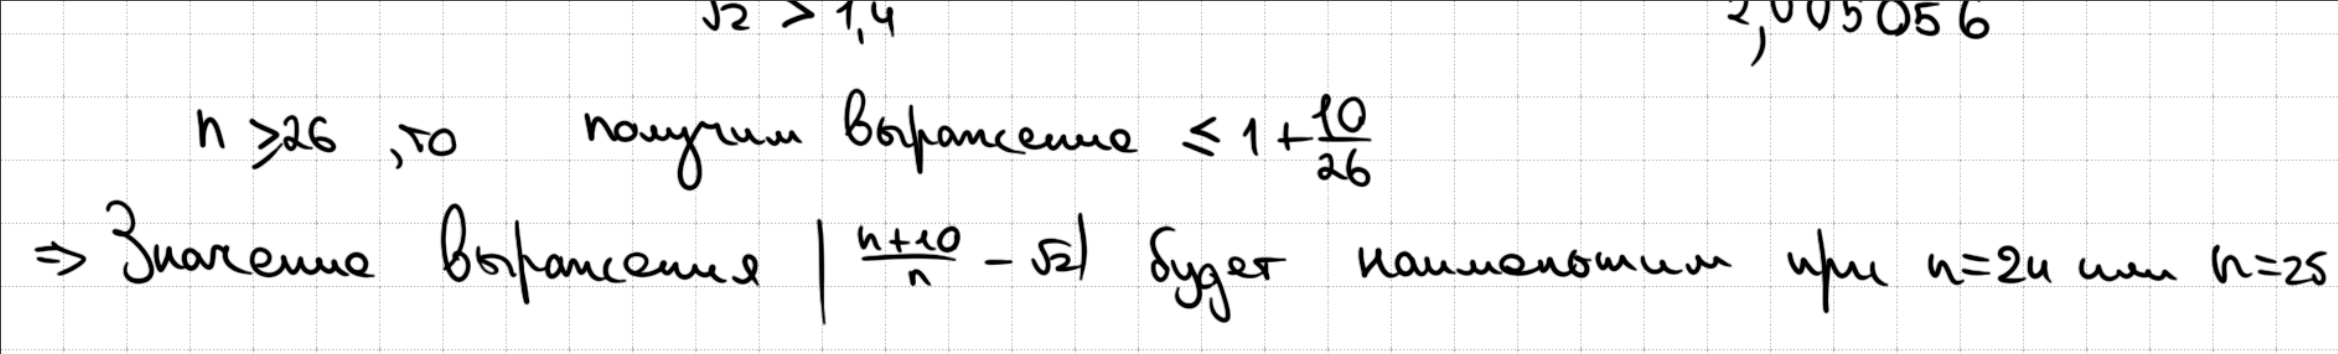 √2 > 1,4 2,005056
n ⩾ 26 , то получим выражение ≤ 1 + 10/26
⇒ Значение выражения | (n+10)/n − √2 | будет наименьшим при n=24 или n=25